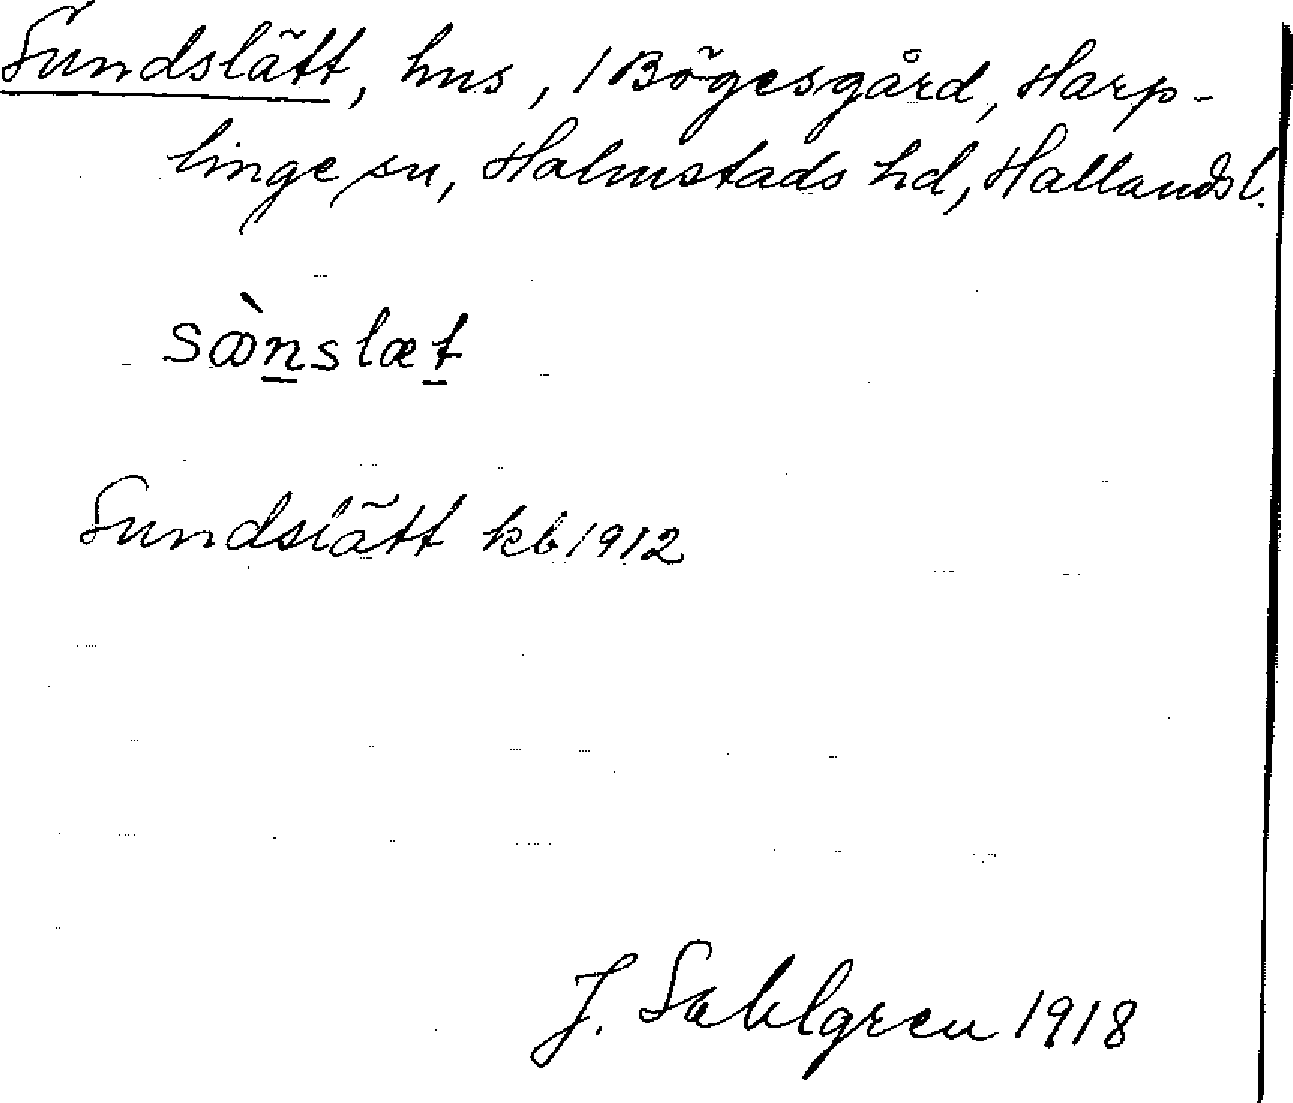 Sundslätt, hus, 1 Bögesgård, Harp-
linge sn, Halmstads hd, Hallands l.
sànslæt
Sundslätt kb 1912
J. Sahlgren 1918